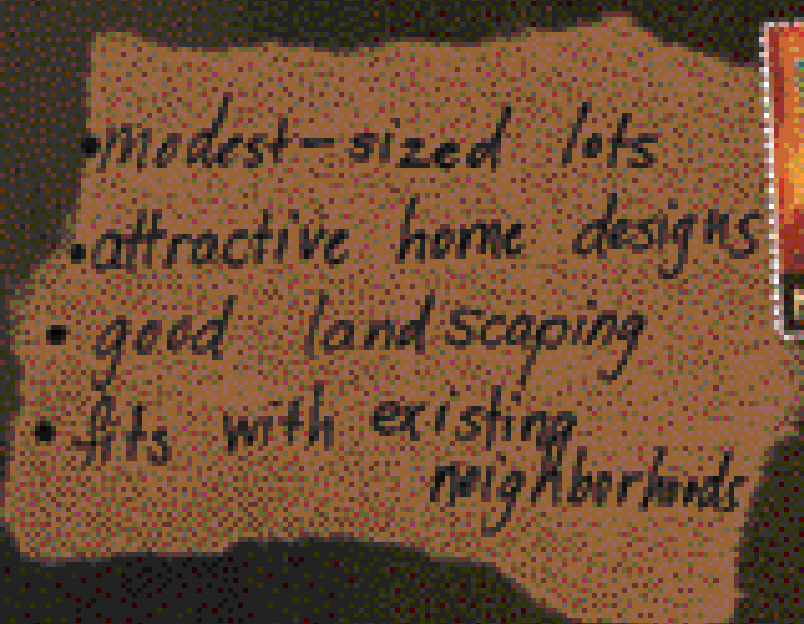 • modest-sized lots
• attractive home designs
• good landscaping
• fits with existing
neighborhoods